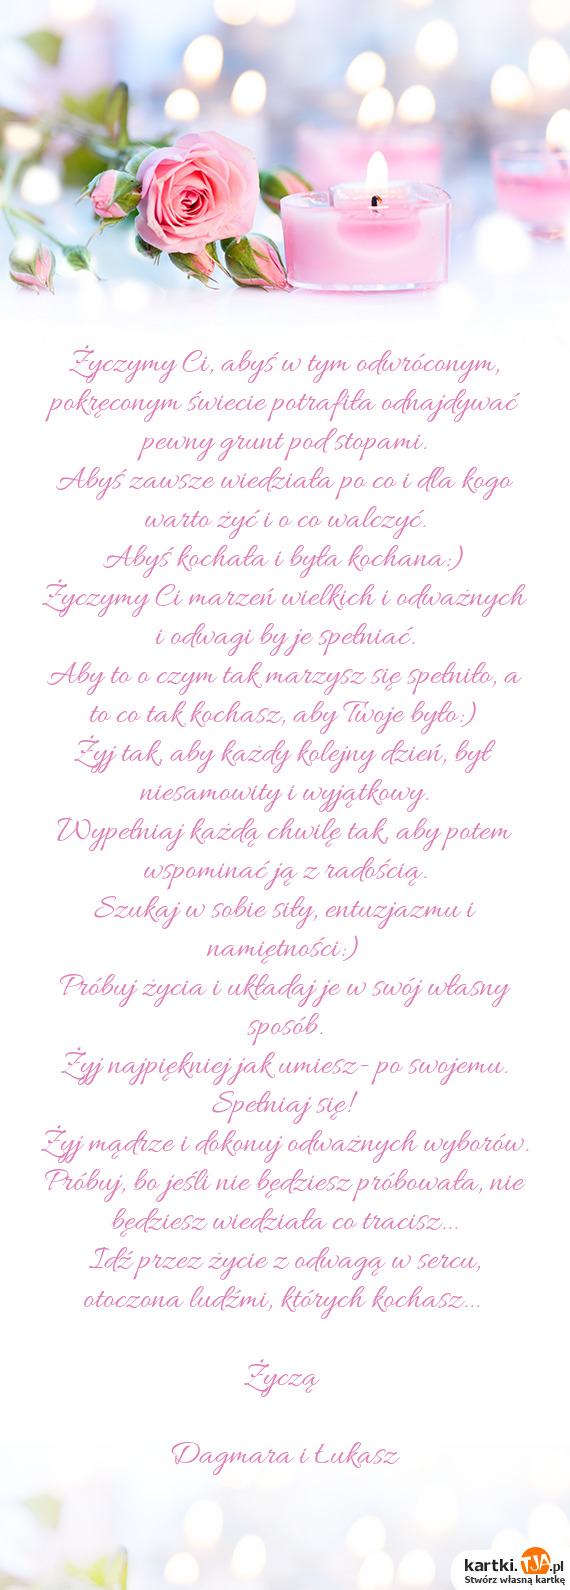 Życzymy Ci, abyś w tym odwróconym,
pokręconym świecie potrafiła odnajdywać
pewny grunt pod stopami.
Abyś zawsze wiedziała po co i dla kogo
warto żyć i o co walczyć.
Abyś kochała i była kochana:)
Życzymy Ci marzeń wielkich i odważnych
i odwagi by je spełniać.
Aby to o czym tak marzysz się spełniło, a
to co tak kochasz, aby Twoje było:)
Żyj tak, aby każdy kolejny dzień, był
niesamowity i wyjątkowy.
Wypełniaj każdą chwilę tak, aby potem
wspominać ją z radością.
Szukaj w sobie siły, entuzjazmu i
namiętności:)
Próbuj życia i układaj je w swój własny
sposób.
Żyj najpiękniej jak umiesz- po swojemu.
Spełniaj się!
Żyj mądrze i dokonuj odważnych wyborów.
Próbuj, bo jeśli nie będziesz próbowała, nie
będziesz wiedziała co tracisz...
Idź przez życie z odwagą w sercu,
otoczona ludźmi, których kochasz...
Życzą
Dagmara i Łukasz
kartki.TJA.pl
Stwórz własną kartkę